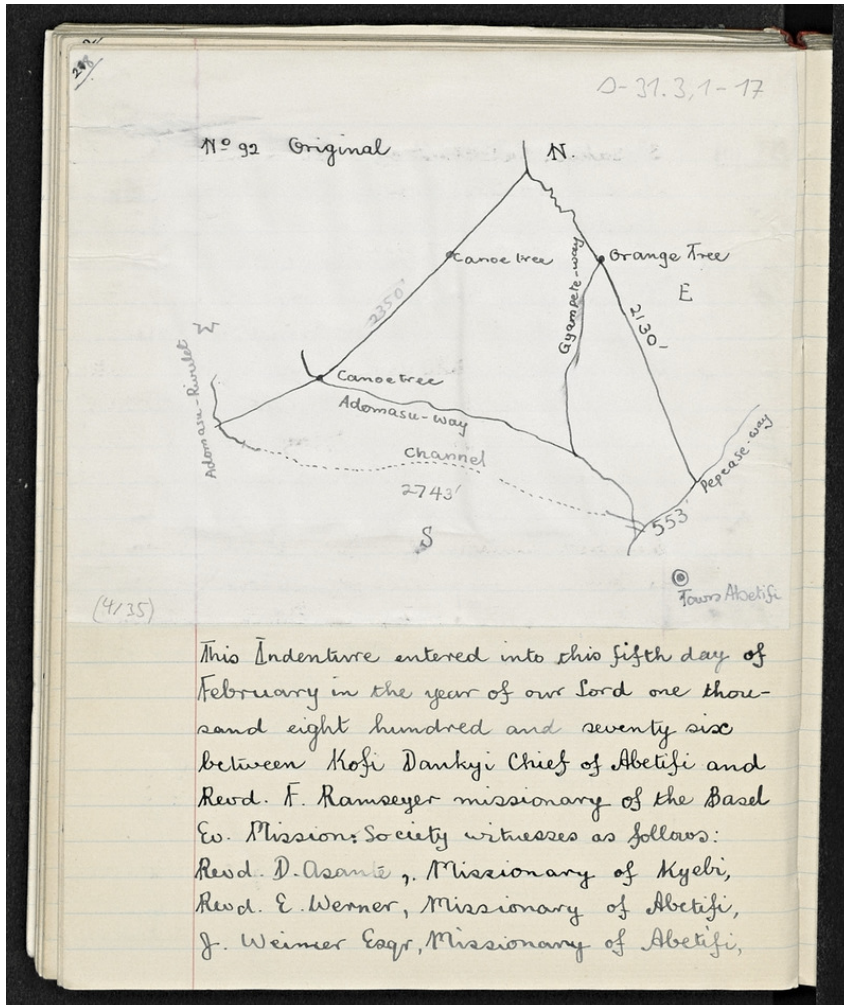 298
D-31.3,1-17
Nº 92 Original
N.
Canoe tree
Orange Tree
E
2350'
Gyampete-way
2130-
W
Canoetree
Adomasu-Rivulet
Adomasu-way
Channel
Pepease-way
2743'
553'
S
Town Abetifi
(4/35)
This Indenture entered into this fifth day of
February in the year of our Lord one thou-
sand eight hundred and seventy six
between Kofi Dankyi Chief of Abetifi and
Revd. F. Ramseyer missionary of the Basel
Ev. Mission: Society witnesses as follows:
Revd. D. Asante, Missionary of Kyebi,
Revd. E. Werner, Missionary of Abetifi,
J. Weimer Esqr, Missionary of Abetifi,